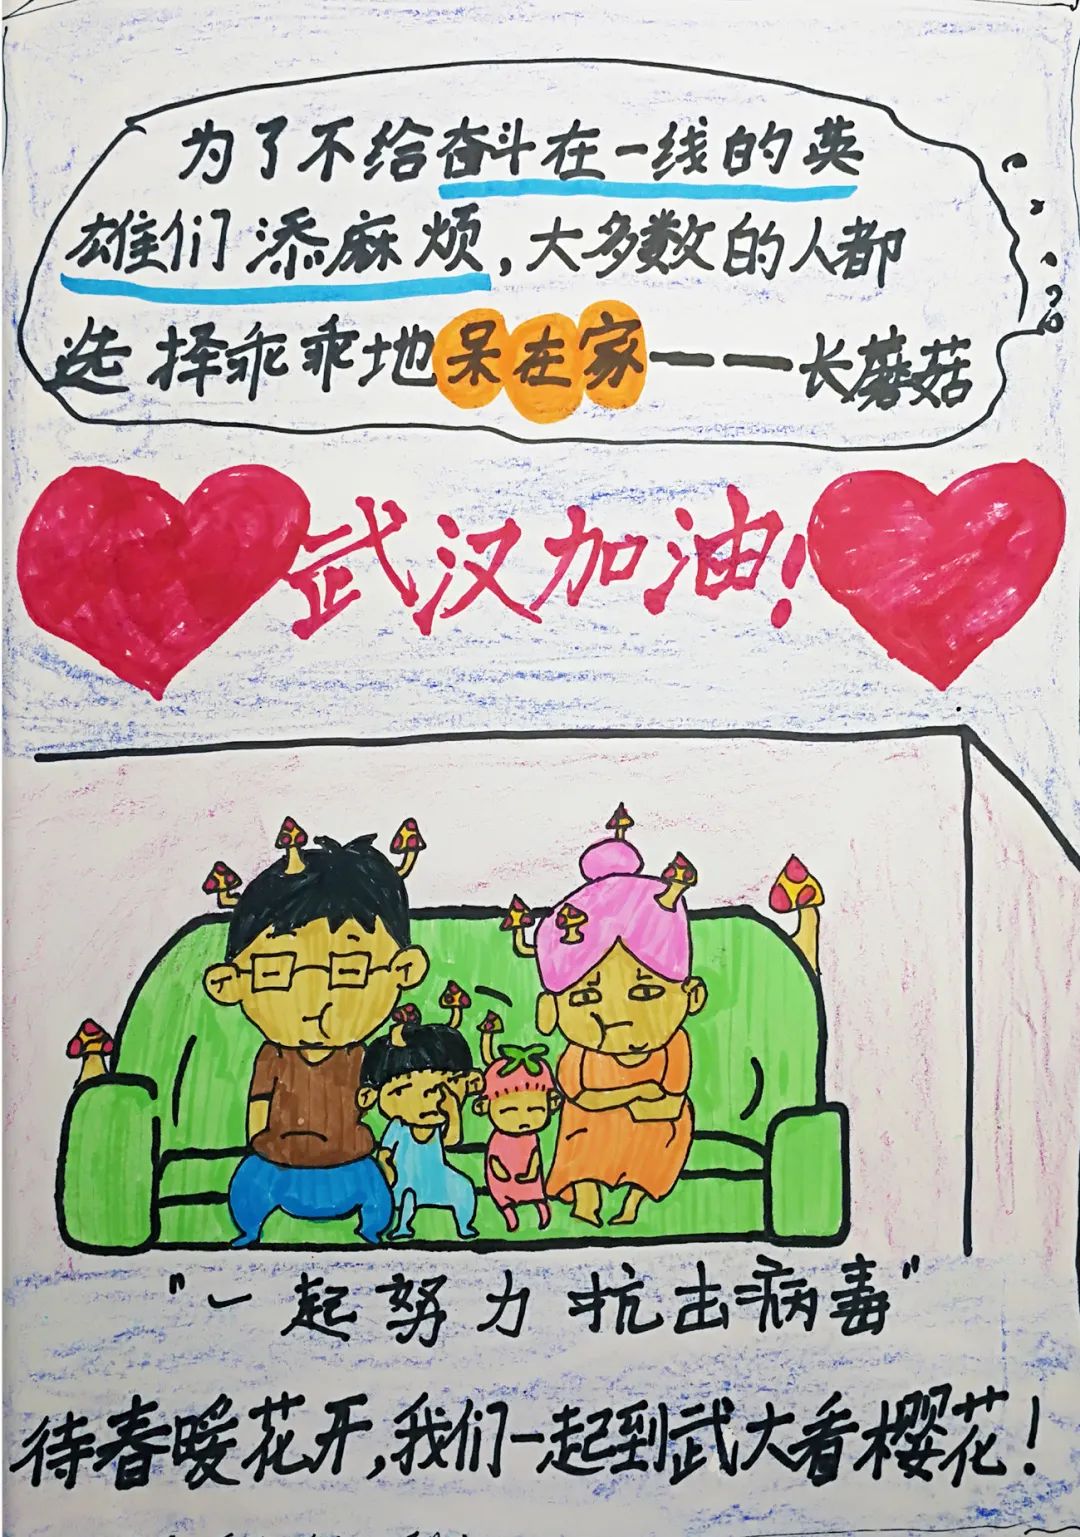 为了不给奋斗在一线的英
雄们添麻烦,大多数的人都
选择乖乖地呆在家——长蘑菇
武汉加油!
"一起努力抗击病毒"
待春暖花开,我们一起到武大看樱花!